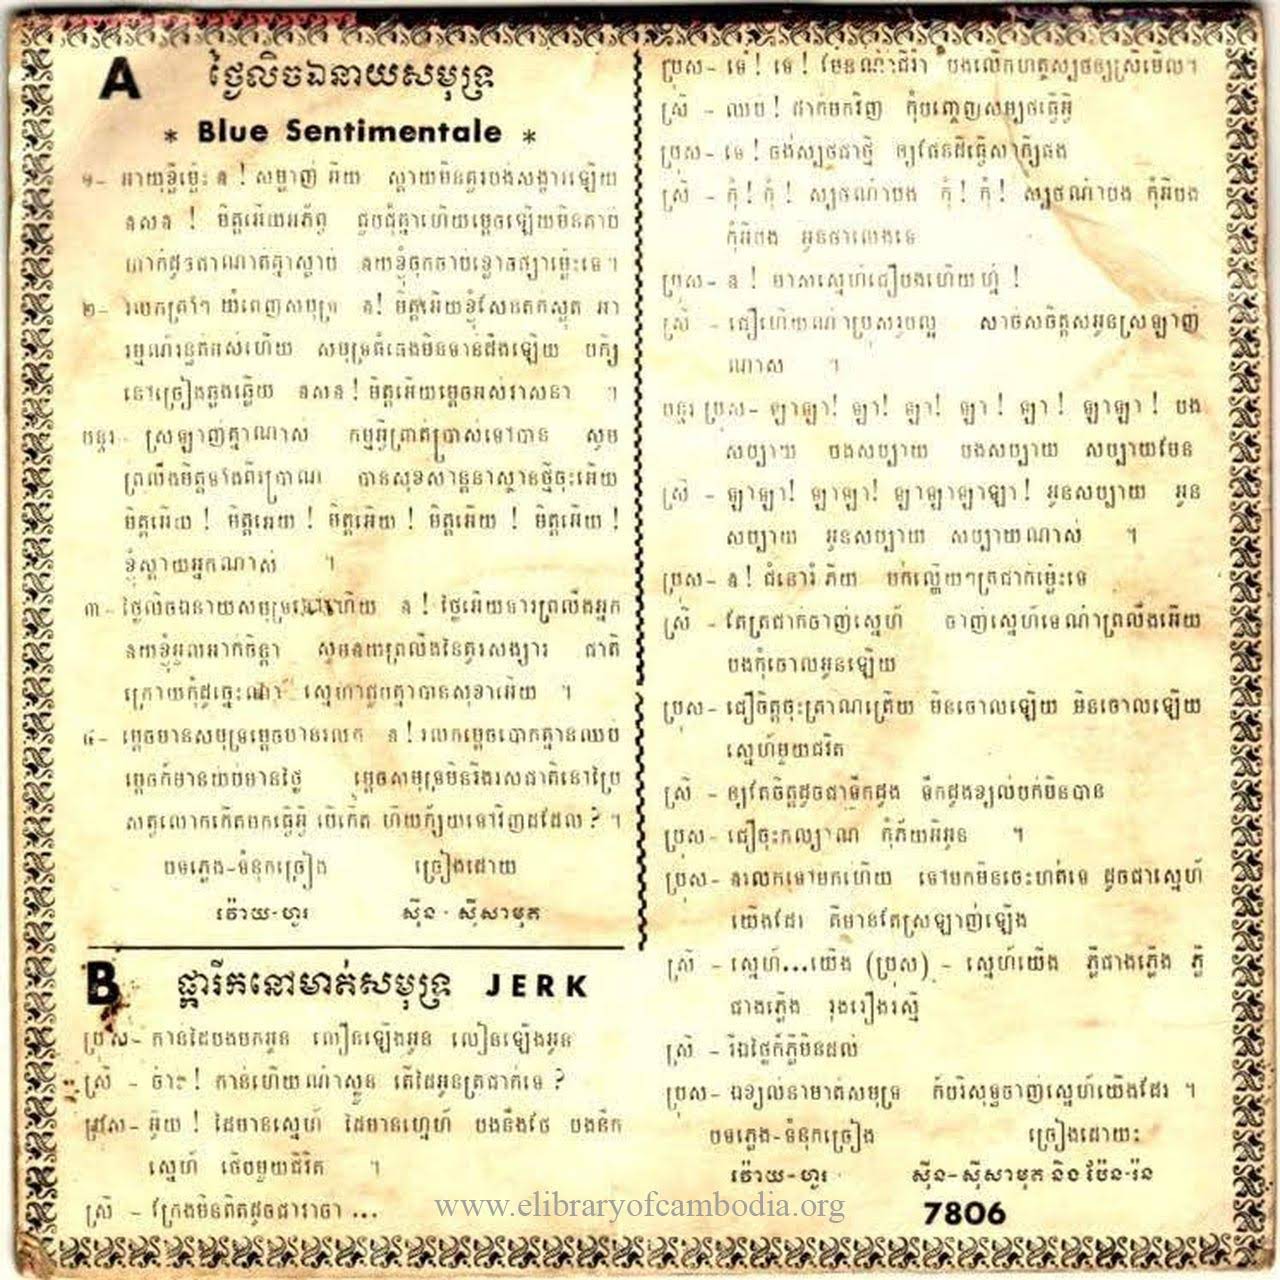 A ថ្ងៃលិចឯនាយសមុទ្រ
* Blue Sentimentale *
១- អាយុខ្លីម្ល៉េះ ឥ ! សម្លាញ់ អើយ ស្ដាយមិនគួរបង់សង្ខារឡើយ
ឥសឥ ! មិត្តអើយអភ័ព្វ ជួបជុំគ្នាហើយម្ដេចឡើយមិនគាប់
២- រលកត្រាំៗ យំពេញសមុទ្រ ឥ! មិត្តអើយខ្ញុំសែនតក់ស្លុត អា
រម្មណ៍រន្ធត់អស់ហើយ សមុទ្រធំធេងមិនទាន់ដឹងឡើយ បក្សី
នៅច្រៀងឆ្លងឆ្លើយ ឥសឥ ! មិត្តអើយម្ដេចអស់វាសនា ។
បន្ទរ - ស្រឡាញ់គ្នាណាស់ កម្មអ្វីព្រាត់ប្រាស់ទៅបាន សូម
ព្រលឹងមិត្តទាំងពីរប្រាណ បានសុខសាន្តនាស្ថានថ្មីចុះអើយ
មិត្តអើយ ! មិត្តអើយ ! មិត្តអើយ ! មិត្តអើយ ! មិត្តអើយ !
ខ្ញុំស្ដាយអ្នកណាស់ ។
៣- ថ្ងៃលិចឯនាយសមុទ្រ ហើយ ឥ ! ថ្លៃអើយទារព្រលឹងអ្នក
ឥយខ្ញុំអួលអាក់ចិន្ដា សូមឥយព្រលឹងនៃគូរសង្សារ ជាតិ
ក្រោយកុំដូច្នេះណា ស្នេហាជួបគ្នាបានសុខាអើយ ។
៤- ម្ដេចមានសមុទ្រម្ដេចមានរលក ឥ ! រលកម្ដេចបោកគ្មានឈប់
ម្ដេចក៏មានយប់មានថ្ងៃ ម្ដេចសាមុទ្រមិនរីងរសជាតិនៅប្រៃ
សត្វលោកកើតមកធ្វើអ្វី បើកើត ហើយក្ស័យទៅវិញដដែល ? ។
បទភ្លេង-ទំនុកច្រៀង ច្រៀងដោយ
វ៉ោយ-ហូរ ស៊ីន - ស៊ីសាមុត
B ផ្ការីកនៅមាត់សមុទ្រ JERK
ប្រុស- កាន់ដៃបងមកអូន លឿនឡើងអូន លឿនឡើងអូន
ស្រី - ច៎ាះ ! កាន់ហើយណ៎ាស្ងួន តើដៃអូនត្រជាក់ទេ ?
ប្រុស- អ៊ូយ ! ដៃមានស្នេហ៍ ដៃមានស្នេហ៍ បងនឹងថែ បងនឹក
ស្នេហ៍ ថើបមួយជីវិត ។
ស្រី - ក្រែងមិនពិតដូចជាវាចា ...
ប្រុស- ទេ ! ទេ ! មែនណ៎ាជីវ៉ា បងលើកហត្ថស្បថឲ្យស្រីមើល។
ស្រី - ឈប់ ! ដាក់មកវិញ កុំបញ្ចេញសម្បថធ្វើអ្វី
ប្រុស- ទេ ! ចង់ស្បថជាថ្មី ឲ្យផែនដីធ្វើសាក្សីផង
ស្រី - កុំ ! កុំ ! ស្បថណ៎ាបង កុំ ! កុំ ! ស្បថណ៎ាបង កុំអីបង
កុំអីបង អូនថាលេងទេ
ប្រុស- ឥ ! មាសស្នេហ៍ជឿបងហើយហ្ន៎ !
ស្រី - ជឿហើយណ៎ាប្រុសរូបល្អ សាច់សចិត្តសអូនស្រឡាញ់
ណាស់ ។
បន្ទរ ប្រុស- ឡាឡា! ឡា! ឡា! ឡា ! ឡា ! ឡាឡា ! បង
សប្បាយ បងសប្បាយ បងសប្បាយ សប្បាយមែន
ស្រី - ឡាឡា! ឡាឡា! ឡាឡាឡាឡា! អូនសប្បាយ អូន
សប្បាយ អូនសប្បាយ សប្បាយណាស់ ។
ប្រុស- ឥ ! ជំនោរ៎ ភើយ បក់ល្ហើយៗត្រជាក់ម្ល៉េះទេ
ស្រី - តែត្រជាក់ចាញ់ស្នេហ៍ ចាញ់ស្នេហ៍ទេណ៎ាព្រលឹងអើយ
បងកុំចោលអូនឡើយ
ប្រុស- ជឿចិត្តចុះត្រាណត្រើយ មិនចោលឡើយ មិនចោលឡើយ
ស្នេហ៍មួយជីវិត
ស្រី - ឲ្យតែចិត្តដូចជាទឹកដូង ទឹកដូងខ្យល់បក់មិនបាន
ប្រុស- ជឿចុះកល្យាណ កុំភ័យអីអូន ។
ប្រុស- ឥរលកទៅមកហើយ ទៅមកមិនចេះហត់ទេ ដូចជាស្នេហ៍
យើងដែរ គឺមានតែស្រឡាញ់ឡើង
ស្រី - ស្នេហ៍...យើង (ប្រុស) - ស្នេហ៍យើង ភ្លឺជាងភ្លើង ភ្លឺ
ជាងភ្លើង រុងរឿងរស្មី
ស្រី - រីឯថ្ងៃក៏ភ្លឺមិនដល់
ប្រុស- ឯខ្យល់នាមាត់សមុទ្រ ក៏បរិសុទ្ធចាញ់ស្នេហ៍យើងដែរ ។
បទភ្លេង-ទំនុកច្រៀង ច្រៀងដោយៈ
វ៉ោយ-ហូរ ស៊ីន-ស៊ីសាមុត និង ប៉ែន-រ៉ន
7806
www.elibraryofcambodia.org